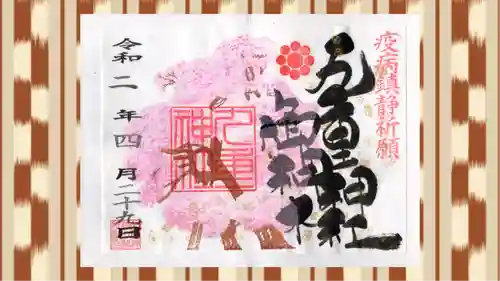 疫病鎮静祈願
九重神社
九重
神社
令和二年四月二十九日